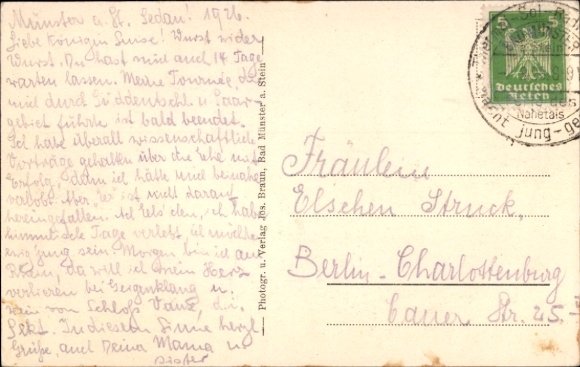 Münster a. St. Sedan! 1926.
Liebe Königin Luise! Wurst wider
Wurst. Du hast mich auch 14 Tage
warten lassen. Meine Tournée, die
mich durch Süddeutschl. u. Saar-
gebiet führte ist bald beendet.
Ich habe überall wissenschaftliche
Vorträge gehalten über die Ehe mit
Erfolg, denn ich hätte mich beinahe
verlobt. Aber "er" ist nicht darauf
hereingefallen. Ach Elschen, ich habe
himmlische Tage verlebt, ich möchte
ewig jung sein. Morgen bin ich am
Rhein, da will ich mein Herz
verlieren bei Gesang u.
Wein von Schloß
Sekt. In diesem Sinne herzl.
Grüße, auch Deine Mama u
Photogr. u. Verlag Jos. Braun, Bad Münster a. Stein
5 5
Deutsches
Reich
Nahetals
jung
Fräulein
Elschen Struck,
Berlin-Charlottenburg
Cauer Str. 25